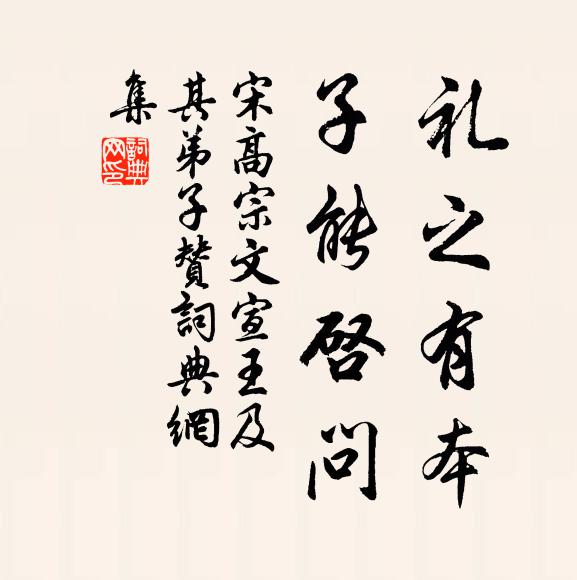 礼之有本
子能启问
宋高宗文宣王及
其弟子赞词典網
集
詞典
网印